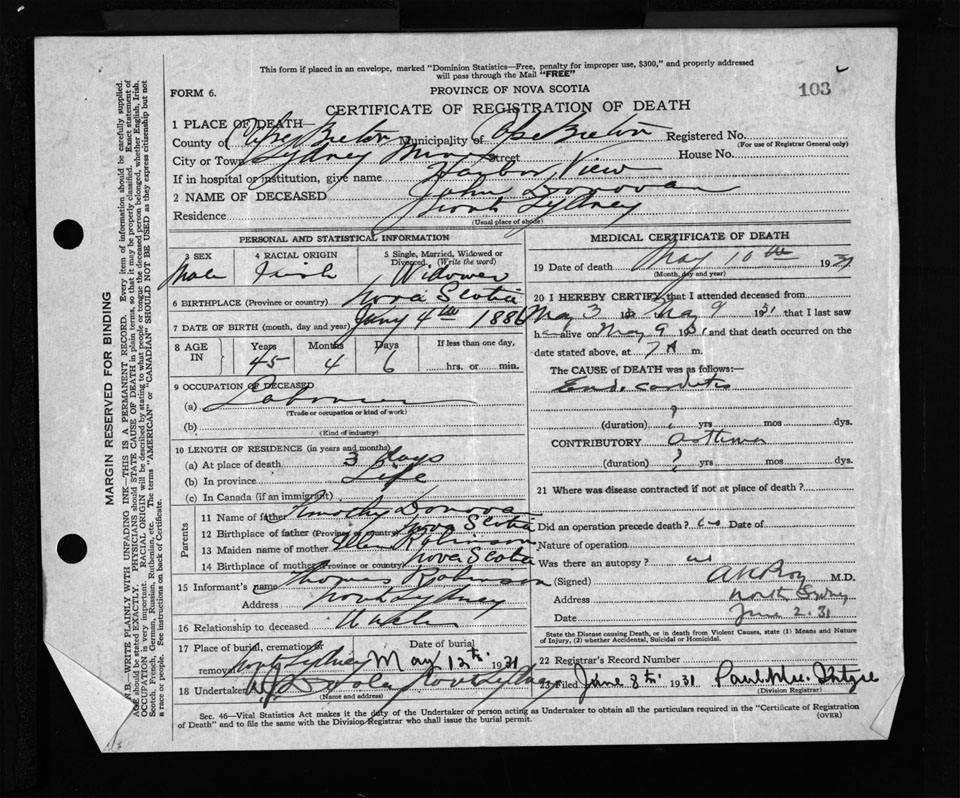 This form if placed in an envelope, marked "Dominion Statistics—Free, penalty for improper use, $300," and properly addressed
will pass through the Mail "FREE"
FORM 6.
PROVINCE OF NOVA SCOTIA
103
CERTIFICATE OF REGISTRATION OF DEATH
1 PLACE OF DEATH—
County of Cape Breton Municipality of Cape Breton Registered No.
(For use of Registrar General only)
City or Town Sydney Mines Street House No.
If in hospital or institution, give name Harbor View
2 NAME OF DECEASED John Donovan
Residence North Sydney
(Usual place of abode)
PERSONAL AND STATISTICAL INFORMATION
3 SEX 4 RACIAL ORIGIN 5 Single, Married, Widowed or Divorced. (Write the word)
Male Irish Widower
6 BIRTHPLACE (Province or country) Nova Scotia
7 DATE OF BIRTH (month, day and year) Jany 4th 1886
8 AGE IN Years Months Days If less than one day,
45 4 6 hrs. or min.
9 OCCUPATION OF DECEASED
(a) Labourer
(Trade or occupation or kind of work)
(b)
(Kind of industry)
10 LENGTH OF RESIDENCE (in years and months)
(a) At place of death 3 days
(b) In province Life
(c) In Canada (if an immigrant)
Parents
11 Name of father Timothy Donovan
12 Birthplace of father (Province or country) Nova Scotia
13 Maiden name of mother Robinson
14 Birthplace of mother (Province or country) Nova Scotia
15 Informant's name Thomas Robinson
Address North Sydney
16 Relationship to deceased Uncle
17 Place of burial, cremation or removal Date of burial
North Sydney May 12th 1931
18 Undertaker North Sydney
(Name and address)
MEDICAL CERTIFICATE OF DEATH
19 Date of death May 10th 1931
(Month, day and year)
20 I HEREBY CERTIFY that I attended deceased from
May 3 to May 9 1931 that I last saw
h alive on May 9 1931 and that death occurred on
date stated above, at 7 A m.
The CAUSE of DEATH was as follows:—
Endocarditis
(duration) ? yrs mos dys.
CONTRIBUTORY Asthma
(duration) ? yrs mos dys.
21 Where was disease contracted if not at place of death?
Did an operation precede death? no Date of
Nature of operation
Was there an autopsy? no
(Signed) M.D.
Address North Sydney
Date June 2.31
State the Disease causing Death, or in death from Violent Causes, state (1) Means and Nature
of Injury, (2) whether Accidental, Suicidal or Homicidal.
22 Registrar's Record Number
23 Filed June 8th 1931
(Division Registrar)
Sec. 46—Vital Statistics Act makes it the duty of the Undertaker or person acting as Undertaker to obtain all the particulars required in the "Certificate of Registration
of Death" and to file the same with the Division Registrar who shall issue the burial permit.
(OVER)
MARGIN RESERVED FOR BINDING
N.B.—WRITE PLAINLY WITH UNFADING INK—THIS IS A PERMANENT RECORD. Every item of information should be carefully supplied.
AGE should be stated EXACTLY. PHYSICIANS should STATE CAUSE OF DEATH in plain terms, so that it may be properly classified. Exact statement of
OCCUPATION is very important. RACIAL ORIGIN will be described by stating to what people or tongue the deceased person belonged, whether English, Irish,
Scotch, French, German, Russian, Ruthenian, etc. The terms "AMERICAN" or "CANADIAN" SHOULD NOT BE USED as they express citizenship but not
a race or people. See instructions on back of Certificate.